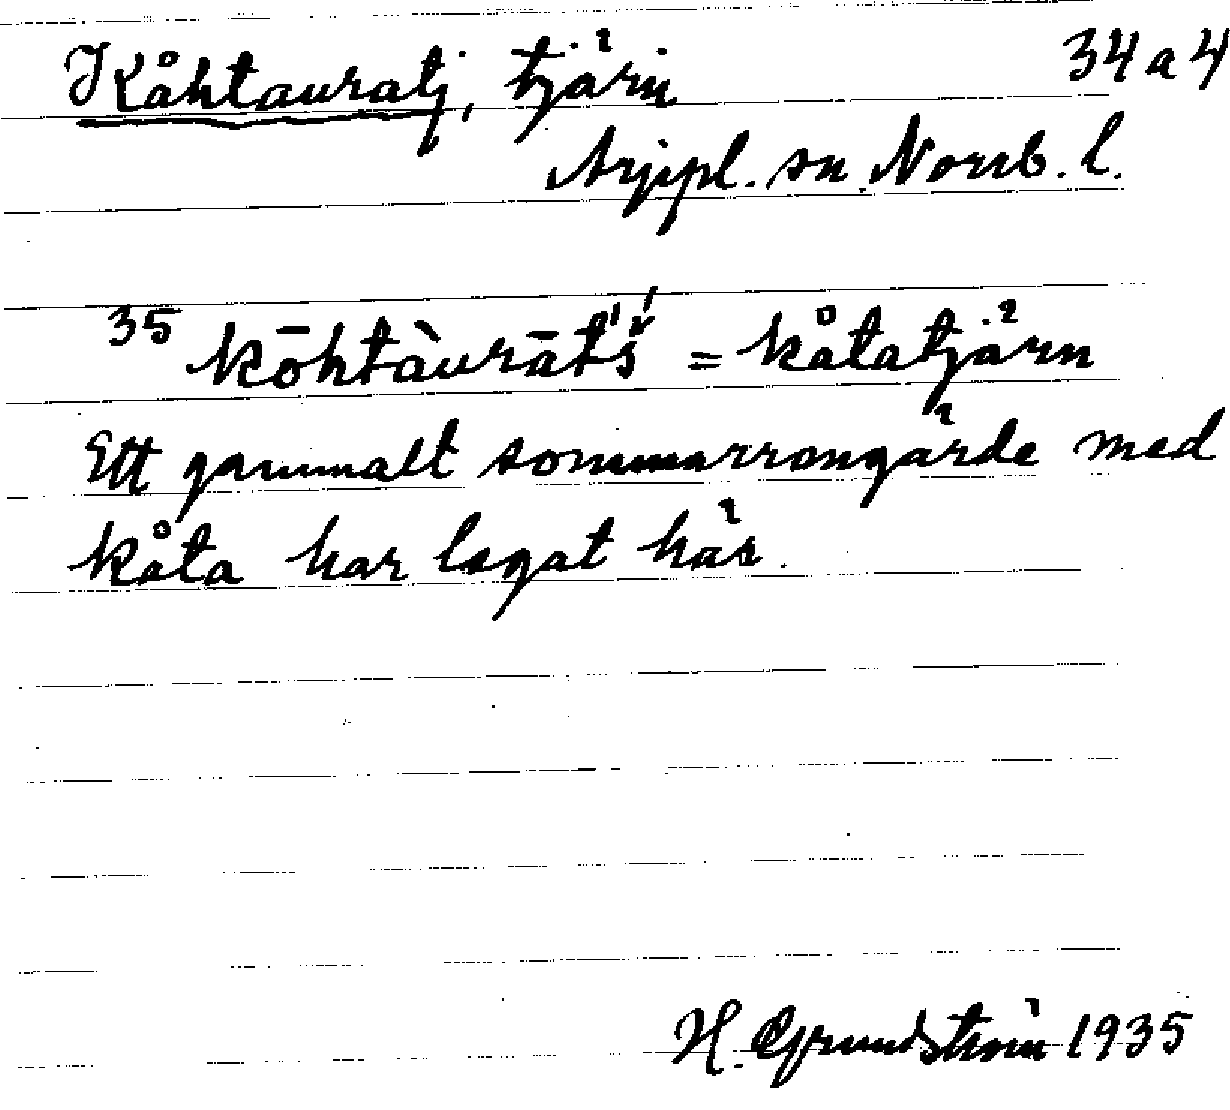 Kåhtauratj, tjärn 34 a 4
Arjepl. sn. Norrb. l.
35 kōhtàurāt́ś = kåtatjärn
Ett gammalt sommarrengärde med
kåta har legat här.
H. Grundström 1935